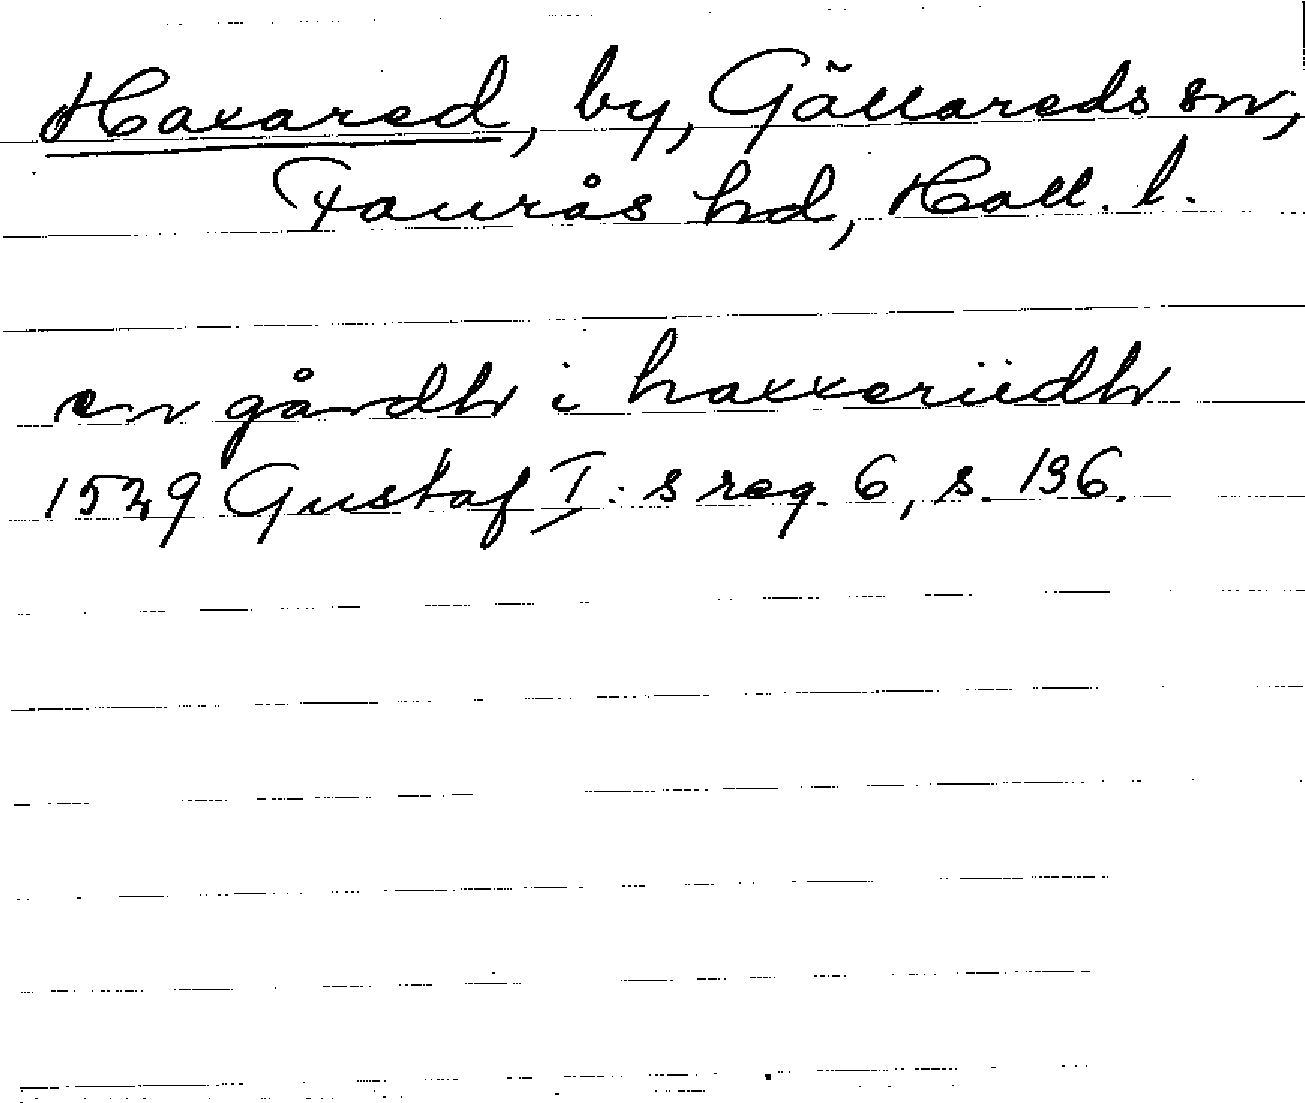 Haxared, by, Gällareds sn,
Faurås hd, Hall. l.
en gårdh i haxxeriidh
1529 Gustaf I:s reg. 6, s. 136.